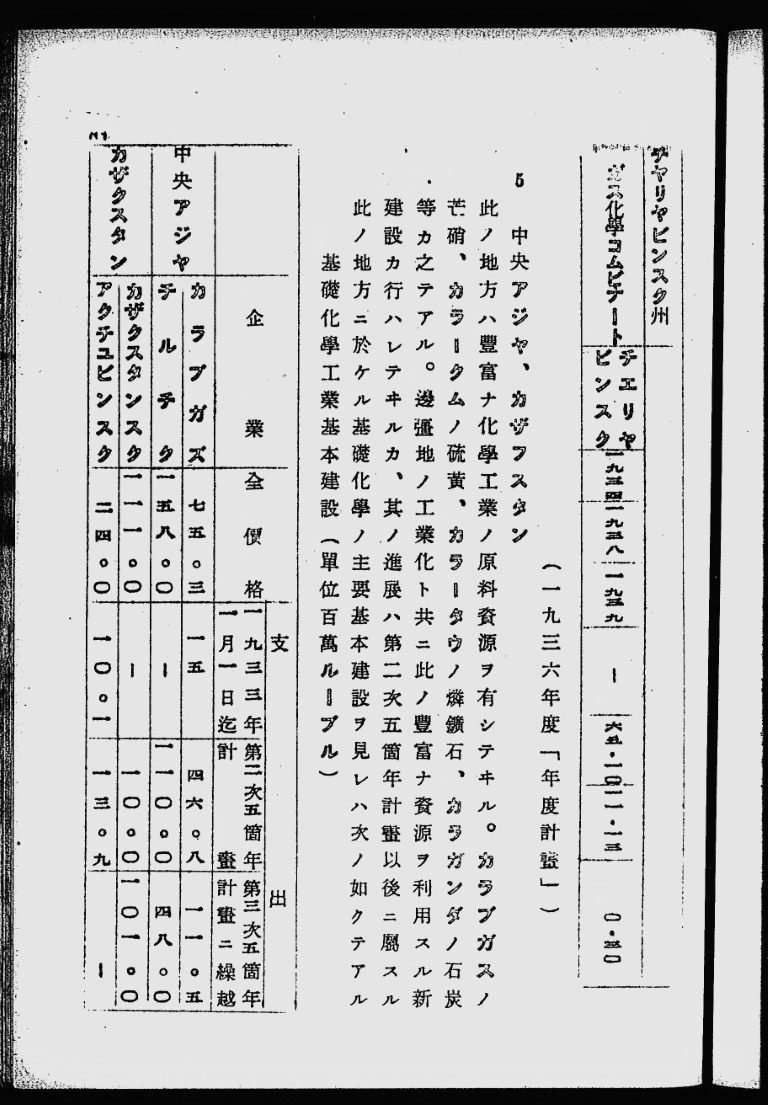 チヤリヤビンスク州
ガス化學コムビナート チエリヤビンスク 一九三四 一九三八 一九三九 ー 六五・一〇 一一・一三 〇・三〇
(一九三六年度「年度計畫」)
5 中央アジヤ、カザフスタン
此ノ地方ハ豐富ナ化學工業ノ原料資源ヲ有シテヰル。カラブガスノ
芒硝、カラークムノ硫黃、カラータウノ燐鑛石、カラガンダノ石炭
等カ之テアル。邊彊地ノ工業化ト共ニ此ノ豐富ナ資源ヲ利用スル新
建設カ行ハレテヰルカ、其ノ進展ハ第二次五箇年計畫以後ニ屬スル
此ノ地方ニ於ケル基礎化學ノ主要基本建設ヲ見レハ次ノ如クテアル
基礎化學工業基本建設(單位百萬ルーブル)
企業 全價格 支出
一九三三年一月一日迄 第二次五箇年計畫 第三次五箇年計畫ニ繰越
中央アジヤ カラブガズ 七五.三 一五 四六.八 一一.五
チルチク 一五八.〇 ー 一一〇.〇 四八.〇
カザクスタン カザクスタンスク 一一一.〇 ー 一〇.〇 一〇一.〇
アクチユビンスク 二四.〇 一〇.一 一三.九 ー